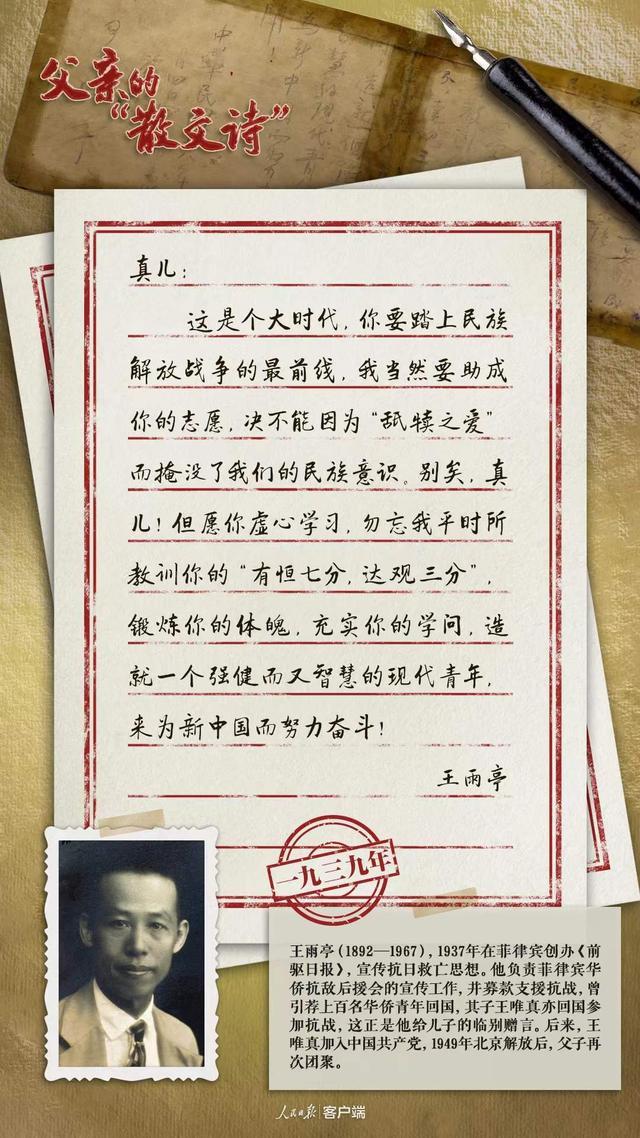 父亲的
“散文诗”
真儿：
这是个大时代，你要踏上民族
解放战争的最前线，我当然要助成
你的志愿，决不能因为“舐犊之爱”
而掩没了我们的民族意识。别矣，真
儿！但愿你虚心学习，勿忘我平时所
教训你的“有恒七分，达观三分”，
锻炼你的体魄，充实你的学问，造
就一个强健而又智慧的现代青年，
来为新中国而努力奋斗！
王雨亭
一九三九年
王雨亭（1892—1967），1937年在菲律宾创办《前
驱日报》，宣传抗日救亡思想。他负责菲律宾华
侨抗敌后援会的宣传工作，并募款支援抗战，曾
引荐上百名华侨青年回国，其子王唯真亦回国参
加抗战，这正是他给儿子的临别赠言。后来，王
唯真加入中国共产党，1949年北京解放后，父子再
次团聚。
人民日报 客户端